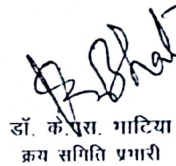 डॉ. के.एस. भाटिया
क्रय समिति प्रभारी